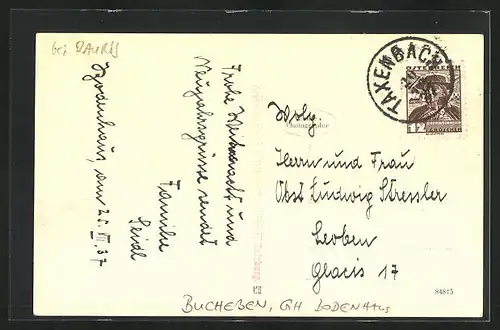 bei RAURIS
Bodenhaus, am 25. XII. 37
Frohe Weihnacht und
Neujahrsgrüsse sendet
Familie
Seidl
TAXENBACH
ÖSTERREICH
12 GROSCHEN
Photographie
Herrn und Frau
Obst. Ludwig Stressler
Leoben
Glacis 17
84815
BUCHEBEN, GH BODENHAUS